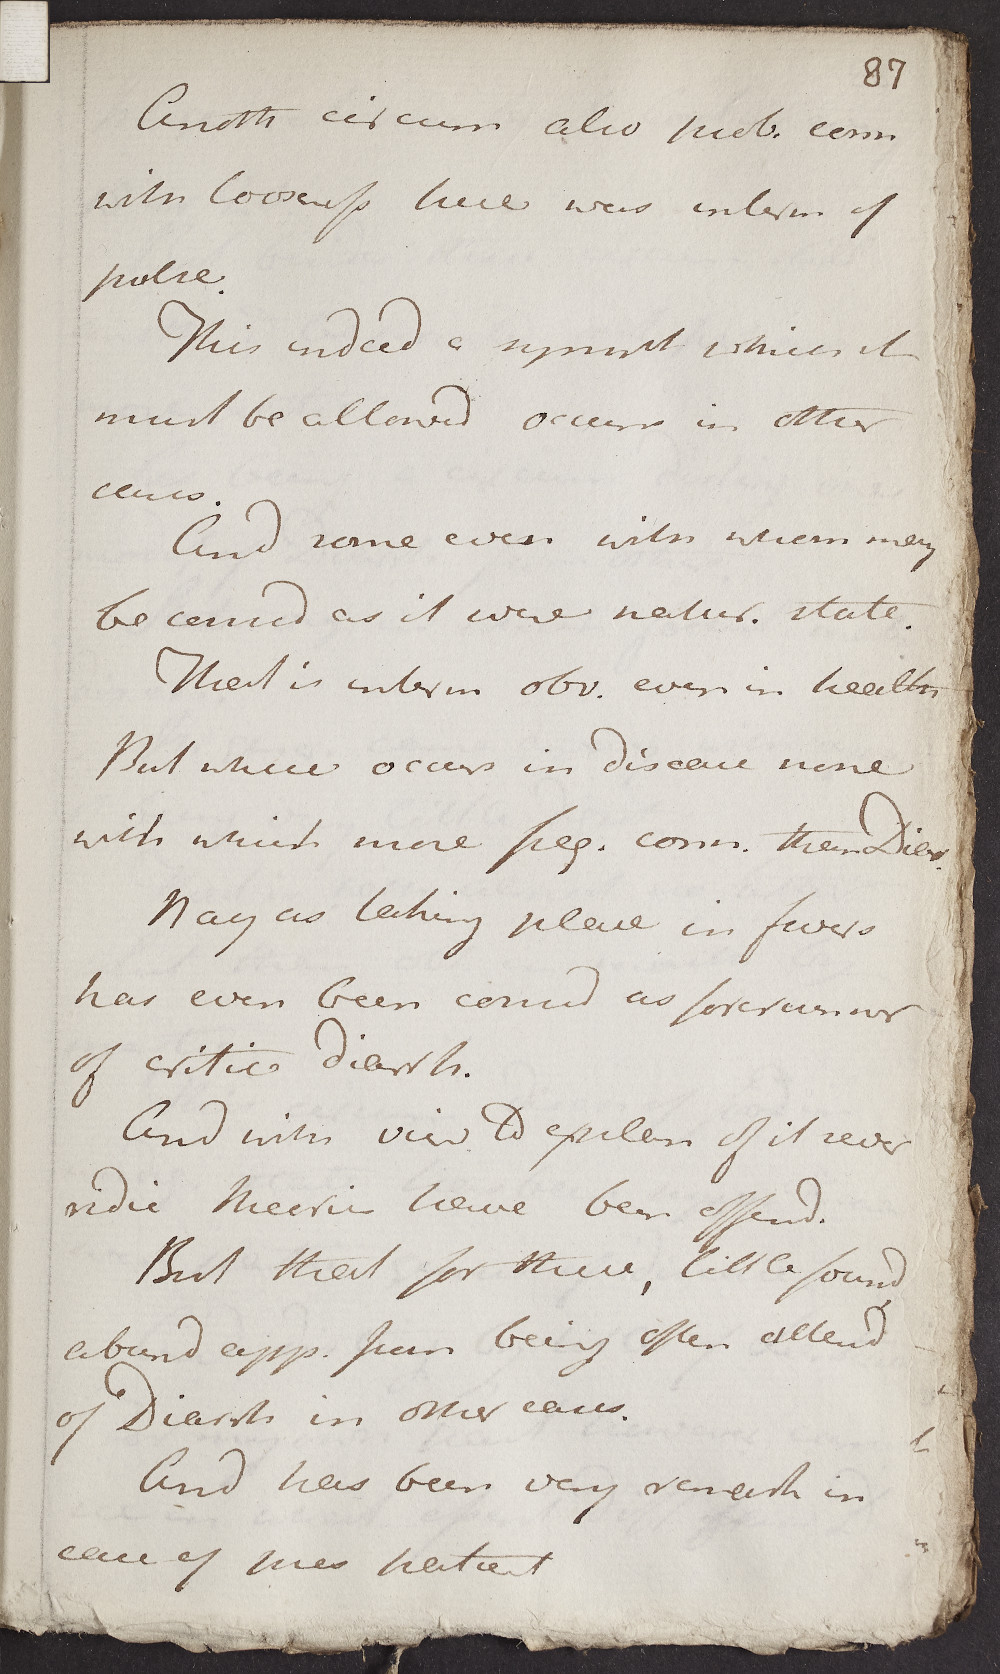 87
Anoth circum also prob. conn
with looseness here was interm of
pulse.
This indeed a sympt which it
must be allowed occurs in other
cases.
And some even with whom may
be consid as it were natur. state.
That is interm obs. even in health
But where occurs in disease none
with which more freq. conn. than Diar.
Nay as taking place in fevers
has even been consid as forerunner
of critic diarrh.
And with view to explan of it sever
ridic theories have been offend.
But that for these, little found
abund app. from being often attend
of Diarrh in other cases.
And has been very remark in
case of pres patient